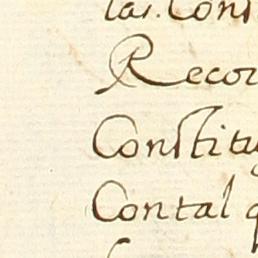 las. Cons
Recor
Constitu
Contal q